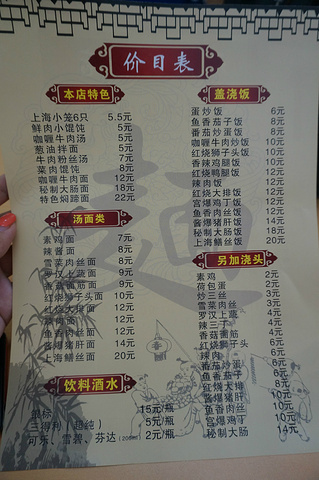 价目表
本店特色
上海小笼6只 5.5元
鲜肉小馄饨 5元
咖喱牛肉汤 5元
葱油拌面 5元
牛肉粉丝汤 7元
菜肉馄饨 8元
咖喱牛肉面 12元
秘制大肠面 18元
特色焖蹄面 22元
汤面类
素鸡面 7元
辣酱面 8元
雪菜肉丝面 8元
罗汉上蔬面 9元
香菇面筋面 9元
红烧狮子头面 10元
红烧大排面 12元
辣肉面 12元
鱼香肉丝面 12元
酱爆猪肝面 14元
上海鳝丝面 20元
饮料酒水
银标 15元/瓶
三得利（超纯） 5元/瓶
可乐、雪碧、芬达（200ml） 2元/瓶
盖浇饭
蛋炒饭 6元
鱼香茄子饭 8元
番茄炒蛋饭 8元
咖喱牛肉炒饭 10元
红烧狮子头饭 10元
香辣鸡腿饭 10元
红烧鸭腿饭 12元
辣肉饭 12元
红烧大排饭 12元
宫爆鸡丁饭 12元
鱼香肉丝饭 12元
酱爆猪肝饭 14元
秘制大肠饭 18元
上海鳝丝饭 20元
另加浇头
素鸡 2元
荷包蛋 2元
炒三丝 3元
雪菜肉丝 3元
罗汉上蔬 4元
辣三丁 4元
香菇面筋 4元
红烧狮子头 6元
辣肉 6元
番茄炒蛋 6元
鱼香茄子 6元
红烧大排 8元
酱爆猪肝 10元
鱼香肉丝 10元
宫爆鸡丁 10元
秘制大肠 14元